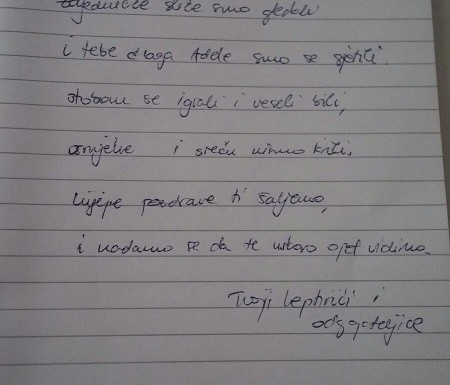 zajedničke slike smo gledali
i tebe draga Adele smo se sjetili.
stobom se igrali i veseli bili,
osmjehe i sreću nismo krili,
Lijepe pozdrave ti šaljemo,
i nadamo se da te uskoro opet vidimo.
Tvoji leptirići i
odgojateljice